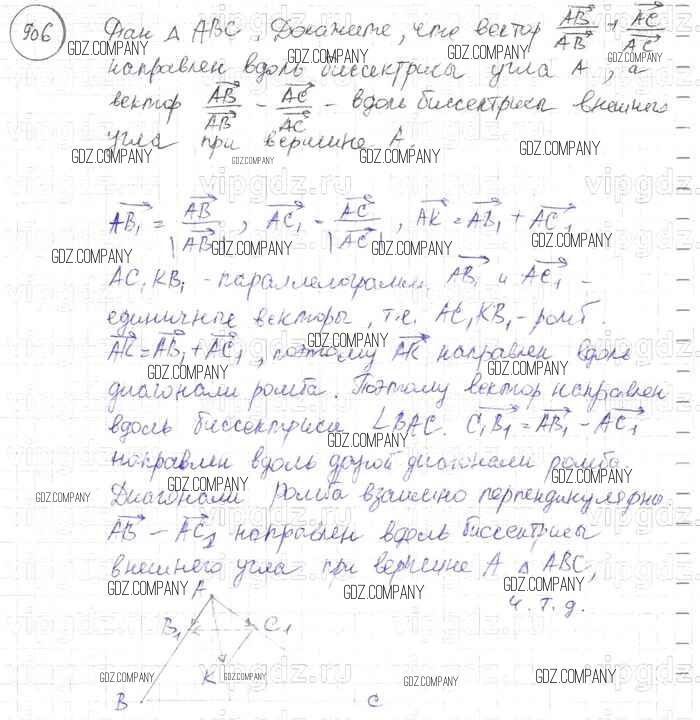 906 Дан △ ABC. Докажите, что вектор AB/AB + AC/AC
направлен вдоль биссектрисы угла A, а
вектор AB/AB - AC/AC - вдоль биссектрисы внешнего
угла при вершине A.
AB₁ = AB/|AB|, AC₁ - AC/|AC|, AK = AB₁ + AC₁
AC₁KB₁ - параллелограмм. AB₁ и AC₁ -
единичные векторы, т.е. AC₁KB₁ - ромб.
AK = AB₁ + AC₁, поэтому AK направлен вдоль
диагонали ромба. Поэтому вектор направлен
вдоль биссектрисы ∠BAC. C₁B₁ = AB₁ - AC₁
направлен вдоль другой диагонали ромба.
Диагонали ромба взаимно перпендикулярны
AB - AC₁ направлен вдоль биссектрисы
внешнего угла при вершине A △ ABC,
ч.т.д.
A
B₁ C₁
K
B C
GDZ.COMPANY
vipgdz.ru